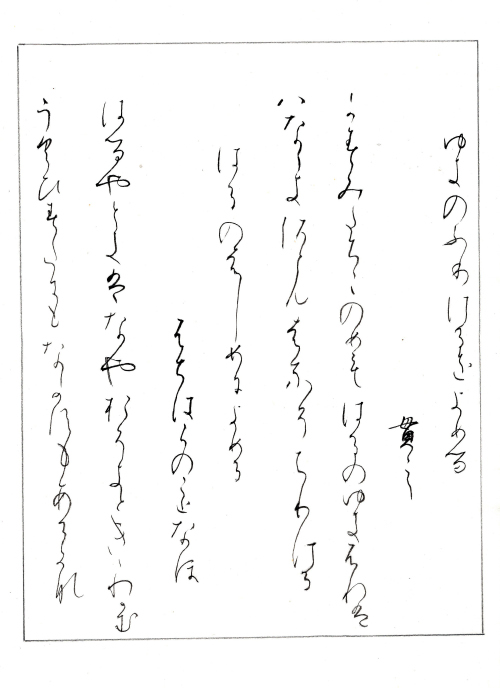 ゆきのふりけるをよめる
貫之
かすみたちこのめもはるのゆきふれは
ハなゝきさともはなそちりける
はるのはしめによめる
ふちはらのことなほ
はるやときはなやおそきときゝわかむ
うくひすたにもなかすもあるかな